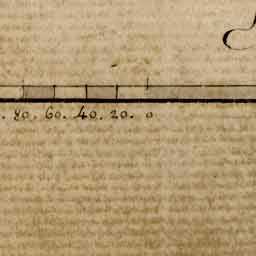 80. 60. 40. 20. 0